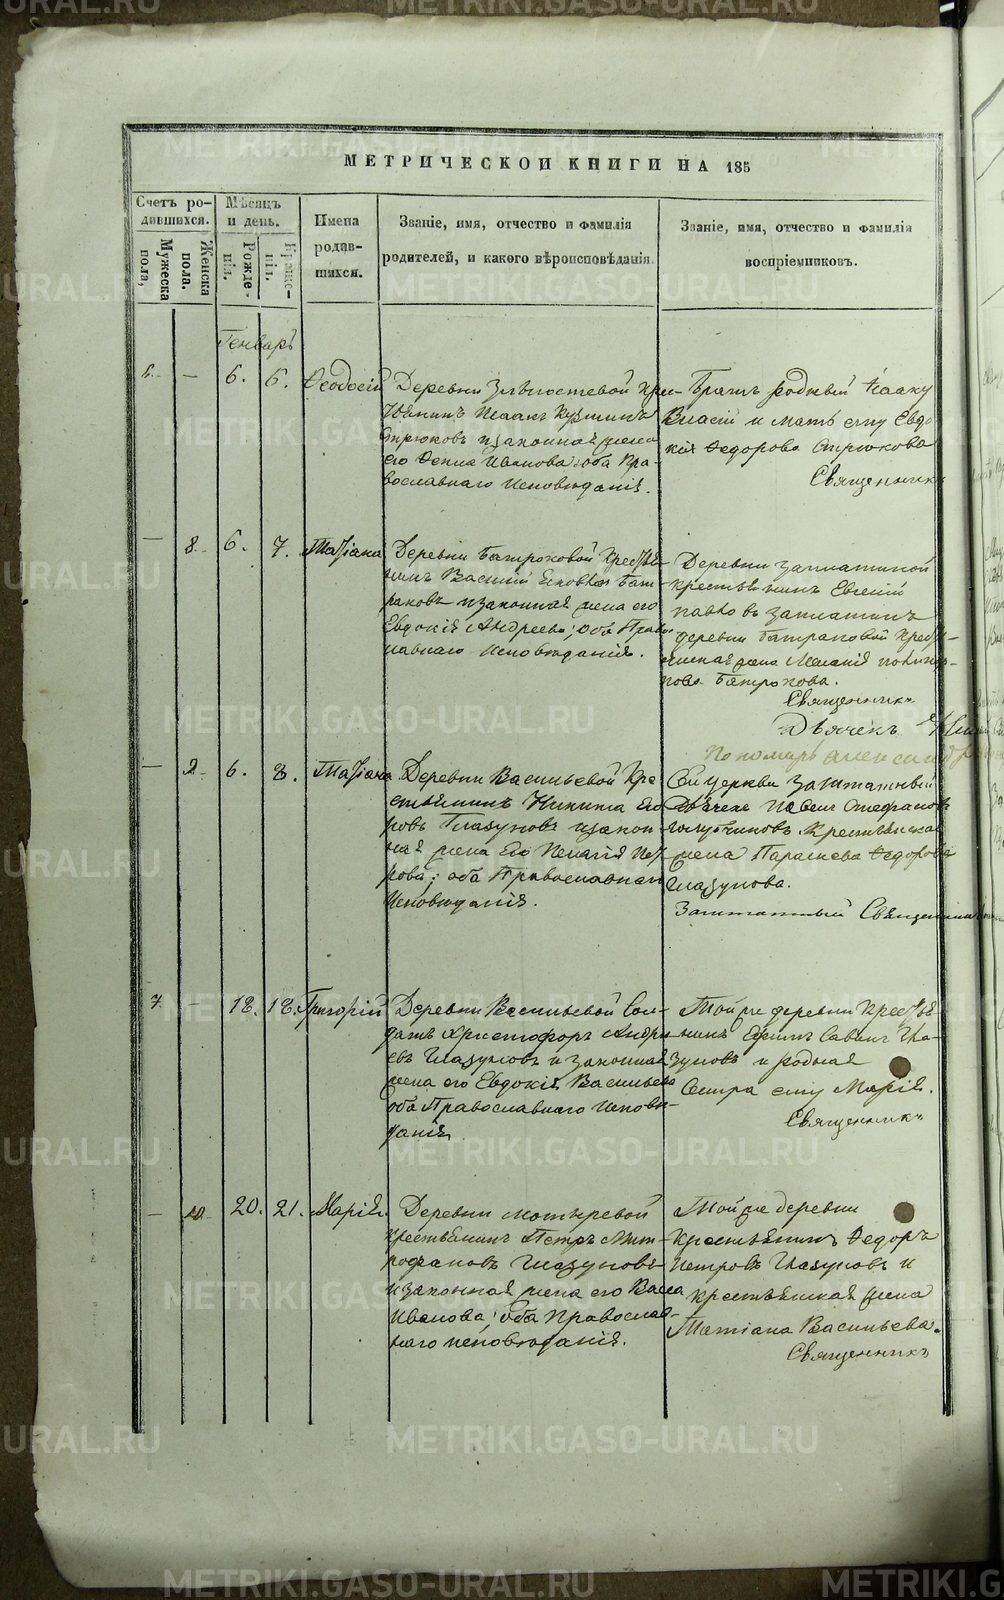 МЕТРИЧЕСКОЙ КНИГИ НА 185
Счетъ ро-
дившихся.
Мѣсяцъ
и день.
Мужеска
пола,
Женска
пола.
Рожде-
нія.
Креще-
нія.
Имена
родив-
шихся.
Званіе, имя, отчество и фамилія
родителей, и какого вѣроисповѣданія.
Званіе, имя, отчество и фамилія
воспріемниковъ.
Генварь
6. 6. Ѳеодосій
Деревни Крес-
тьянинъ Исаакъ Кузминъ
Стрюковъ и законная жена
его Ѳекла Иванова; оба Пра-
вославнаго Исповѣданія.
Братъ родный Исааку
Власій и мать ему Евдо-
кія Ѳедорова Стрюкова
Священникъ
— 8. 6. 7. Татіана
Деревни Батраковой Крестья-
нинъ Василій Бат-
раковъ и законная жена его
Евдокія Андреева; оба Право-
славнаго Исповѣданія.
Деревни Заплатиной
крестьянинъ Евгеній
Заплатинъ
деревни Батраковой крестья-
нская жена Меланія
Батракова.
Священникъ
Дьячекъ
Пономарь Александръ
— 9. 6. 8. Татіана
Деревни Васильевой Кре-
стьянинъ Никита
Глазуновъ и закон-
ная жена Его Пелагія Пет-
рова; оба Православнаго
Исповѣданія.
Сей церкви Заштатный
Дьячекъ Павелъ Стефановъ
Голубчиковъ. Крестьянская
жена Параскева Ѳедорова
Глазунова.
Заштатный Священникъ
7 — 18. 18. Григорій
Деревни Васильевой Сол-
датъ Христофоръ Андре-
евъ Глазуновъ и законная
жена его Евдокія Васильева
оба Православнаго Исповѣ-
данія.
Той же деревни Крестья-
нинъ Ефимъ Савинъ Гла-
зуновъ и родная
Сестра ему Марія.
Священникъ
— 10 20. 21. Марія.
Деревни Мокиревой
Крестьянинъ Петръ Мит-
рофановъ Глазуновъ
и законная жена его Васса
Иванова; оба Православ-
наго исповѣданія.
Той же деревни
Крестьянинъ Ѳедоръ
Петровъ Глазуновъ и
крестьянская жена
Татіана Васильева.
Священникъ
METRIKI.GASO-URAL.RU